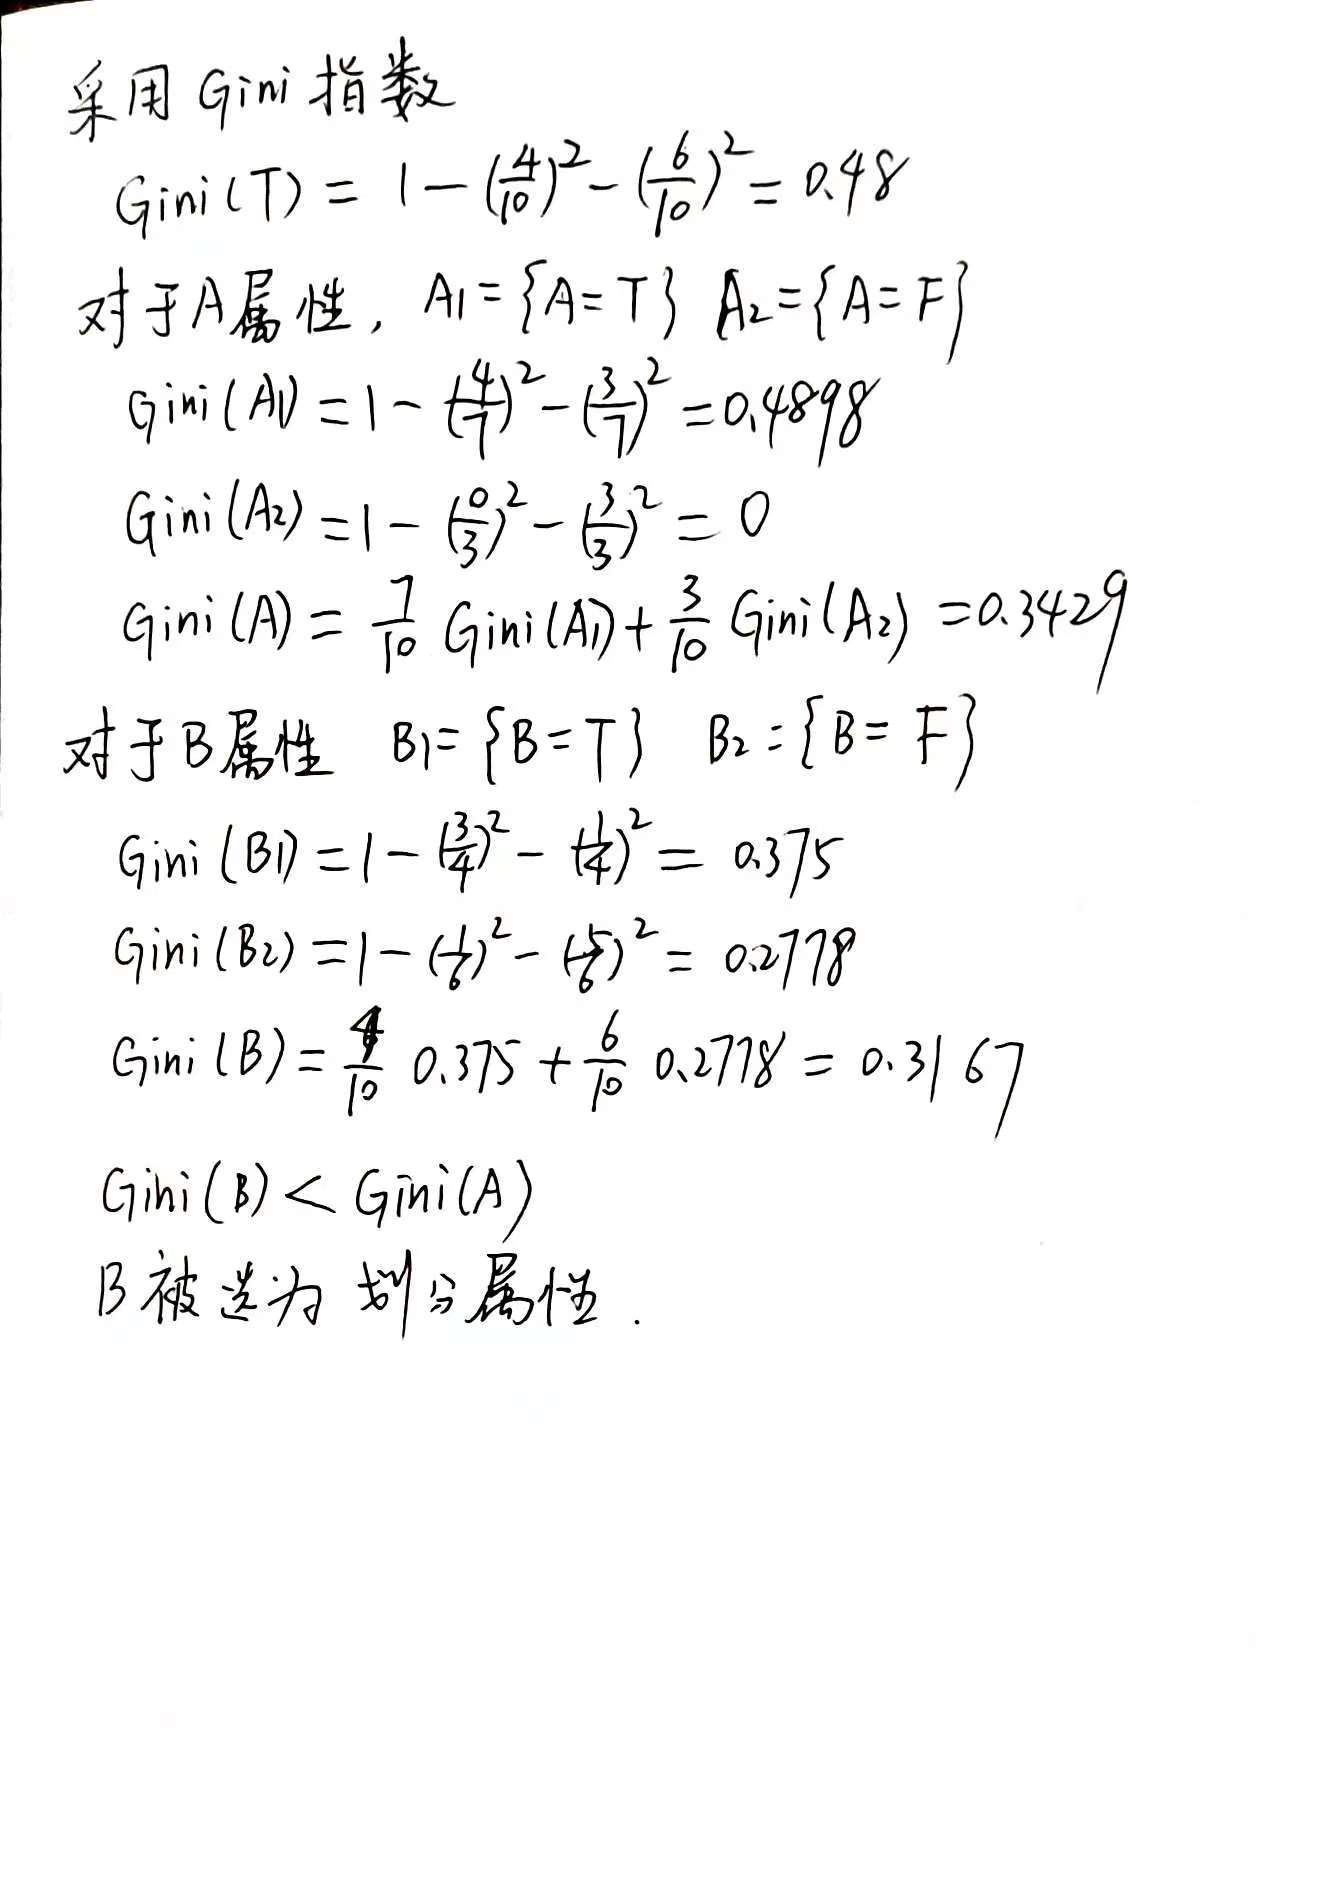 采用 Gini 指数
Gini(T) = 1 - (4/10)² - (6/10)² = 0.48
对于A属性, A₁={A=T} A₂={A=F}
Gini(A₁) = 1 - (4/7)² - (3/7)² = 0.4898
Gini(A₂) = 1 - (0/3)² - (3/3)² = 0
Gini(A) = 7/10 Gini(A₁) + 3/10 Gini(A₂) = 0.3429
对于B属性 B₁={B=T} B₂={B=F}
Gini(B₁) = 1 - (3/4)² - (1/4)² = 0.375
Gini(B₂) = 1 - (1/6)² - (5/6)² = 0.2778
Gini(B) = 4/10 0.375 + 6/10 0.2778 = 0.3167
Gini(B) < Gini(A)
B被选为 划分属性.